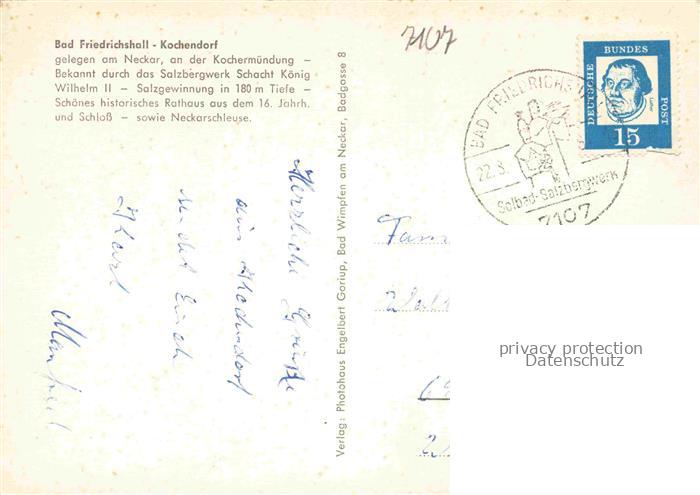 Bad Friedrichshall - Kochendorf
gelegen am Neckar, an der Kochermündung –
Bekannt durch das Salzbergwerk Schacht König
Wilhelm II – Salzgewinnung in 180 m Tiefe –
Schönes historisches Rathaus aus dem 16. Jahrh.
und Schloß – sowie Neckarschleuse.
7107
Herzliche Grüße
aus Kochendorf
sendet Euch
Manfred
Verlag: Photohaus Engelbert Goriup, Bad Wimpfen am Neckar, Badgasse 8
BAD FRIEDRICHS
22.8.
Solbad-Salzbergwerk
7107
DEUTSCHE
BUNDES
POST
Luther
15
Fam
privacy protection
Datenschutz